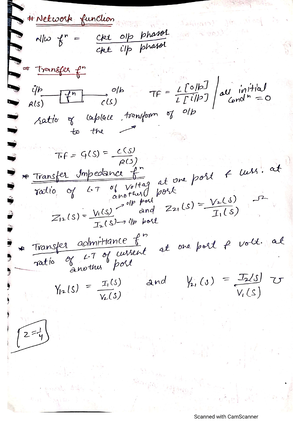 * Network function
N/w fⁿ = ckt o/p phasor / ckt i/p phasor
* Transfer fⁿ
i/p → fⁿ → o/p
R(s) C(s)
TF = L[o/p] / L[i/p] | all initial condⁿ = 0
ratio of laplace transform of o/p
to the
T.F = G(s) = C(s)/R(s)
* Transfer Impedance fⁿ
ratio of L.T of voltag at one port & curr. at
another port
Z₁₂(s) = V₁(s)/I₂(s) → i/p port and Z₂₁(s) = V₂(s)/I₁(s) Ω
* Transfer admittance fⁿ
ratio of L.T of current at one port & volt. at
another port
Y₁₂(s) = I₁(s)/V₂(s) and Y₂₁(s) = I₂(s)/V₁(s) ℧
Scanned with CamScanner